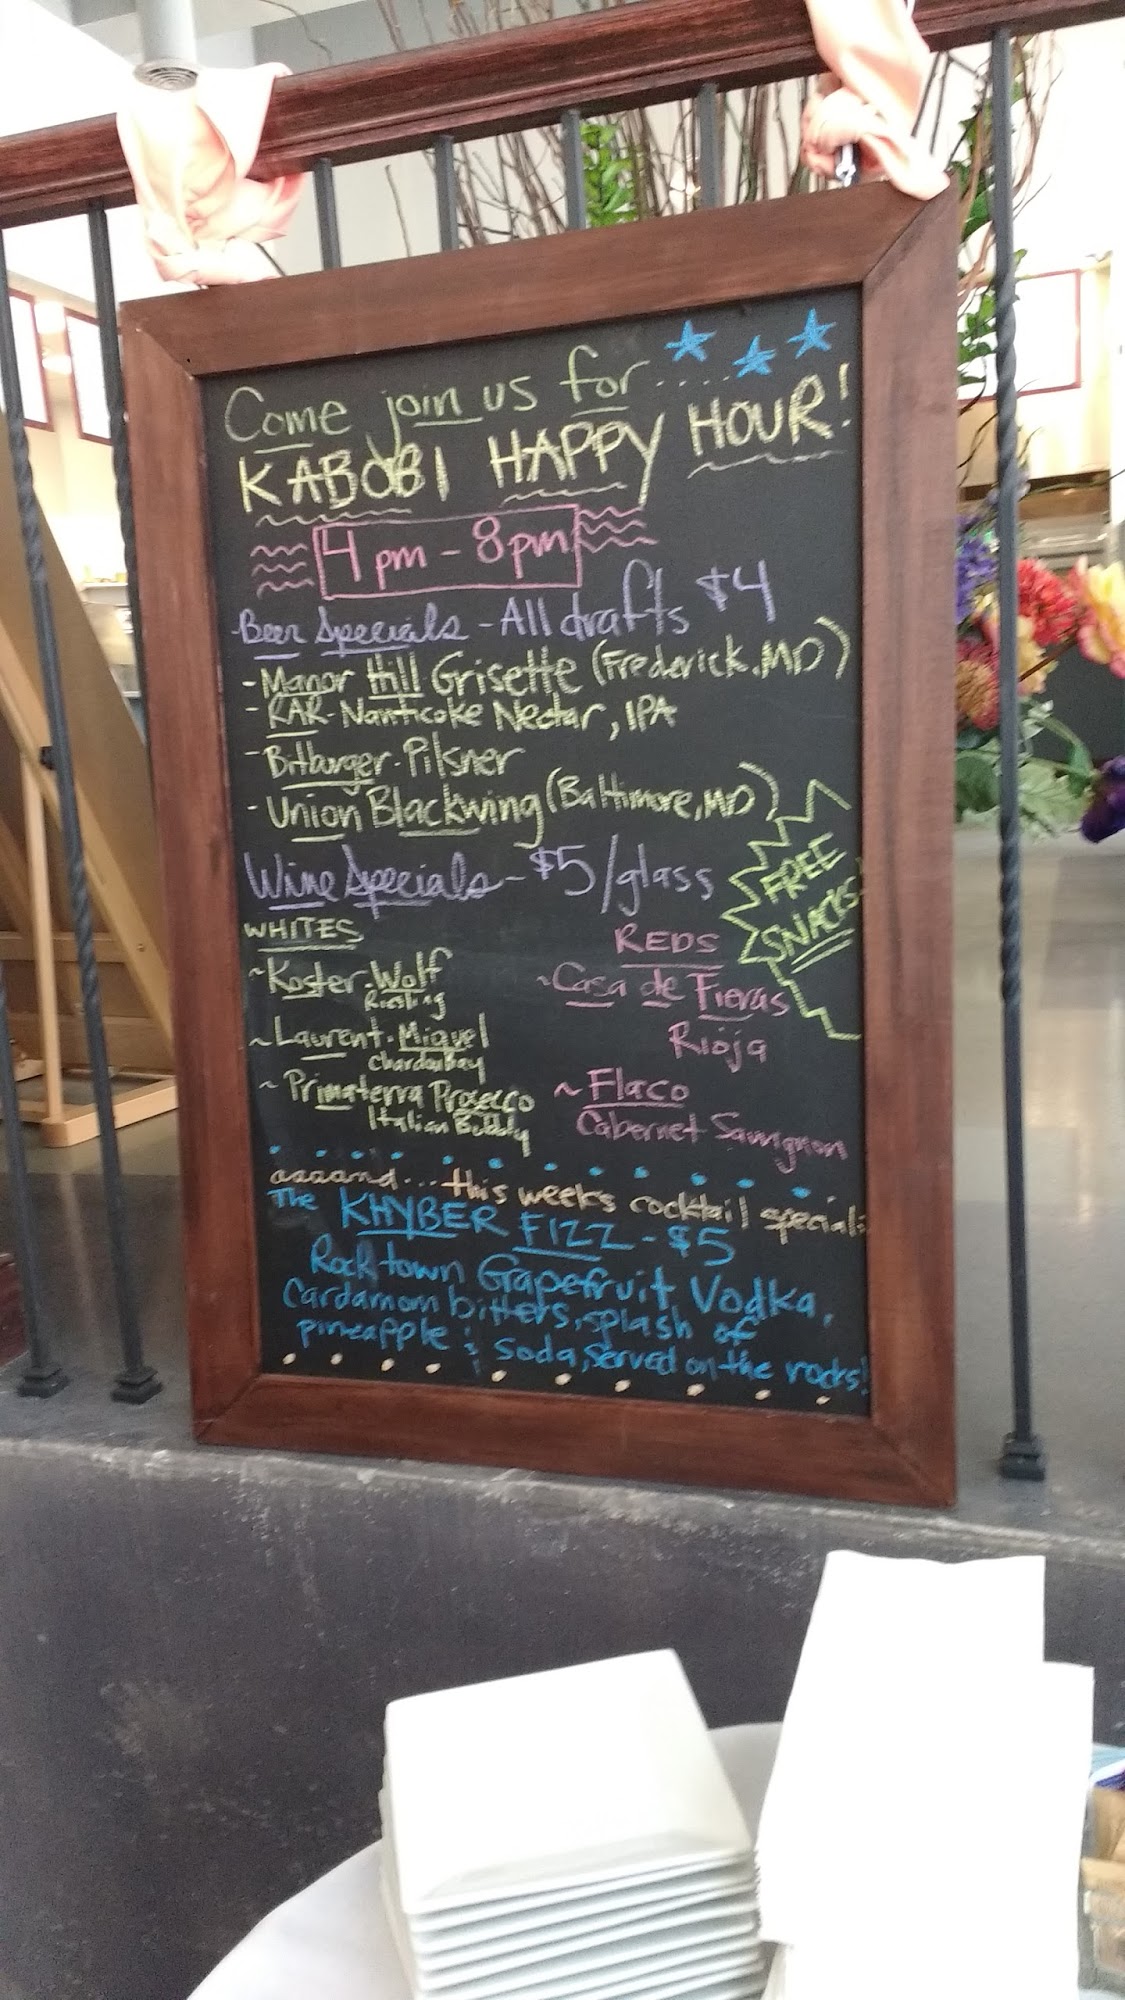 Come join us for......
KABOBI HAPPY HOUR!
4pm - 8pm
Beer Specials - All drafts $4
- Manor Hill Grisette (Frederick.MD)
- RAR - Nanticoke Nectar, IPA
- Bitburger - Pilsner
- Union Blackwing (Baltimore, MD)
FREE
SNACKS!
Wine Specials - $5/glass
WHITES
~ Koster-Wolf
Riesling
~ Laurent-Miquel
Chardonnay
~ Primaterra Prosecco
Italian Bubbly
REDS
~ Casa de Fieras
Rioja
~ Flaco
Cabernet Sauvignon
aaaand... this weeks rocktail special:
The KHYBER FIZZ - $5
Rocktown Grapefruit Vodka,
Cardamom bitters, splash of
pineapple & soda, served on the rocks!